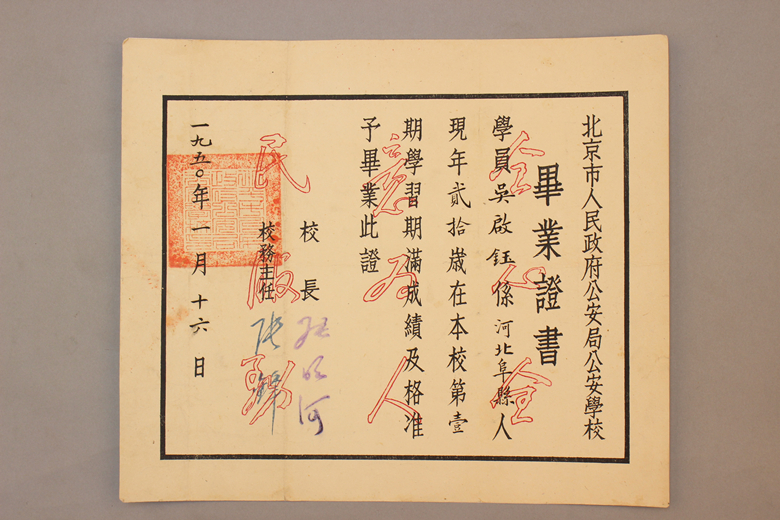 北京市人民政府公安局公安學校
畢業證書
學員吳啟鈺係河北阜縣人
現年貳拾歲在本校第壹
期學習期滿成績及格准
予畢業此證
校長
校務主任
一九五〇年一月十六日
全心全
意為人
民服務